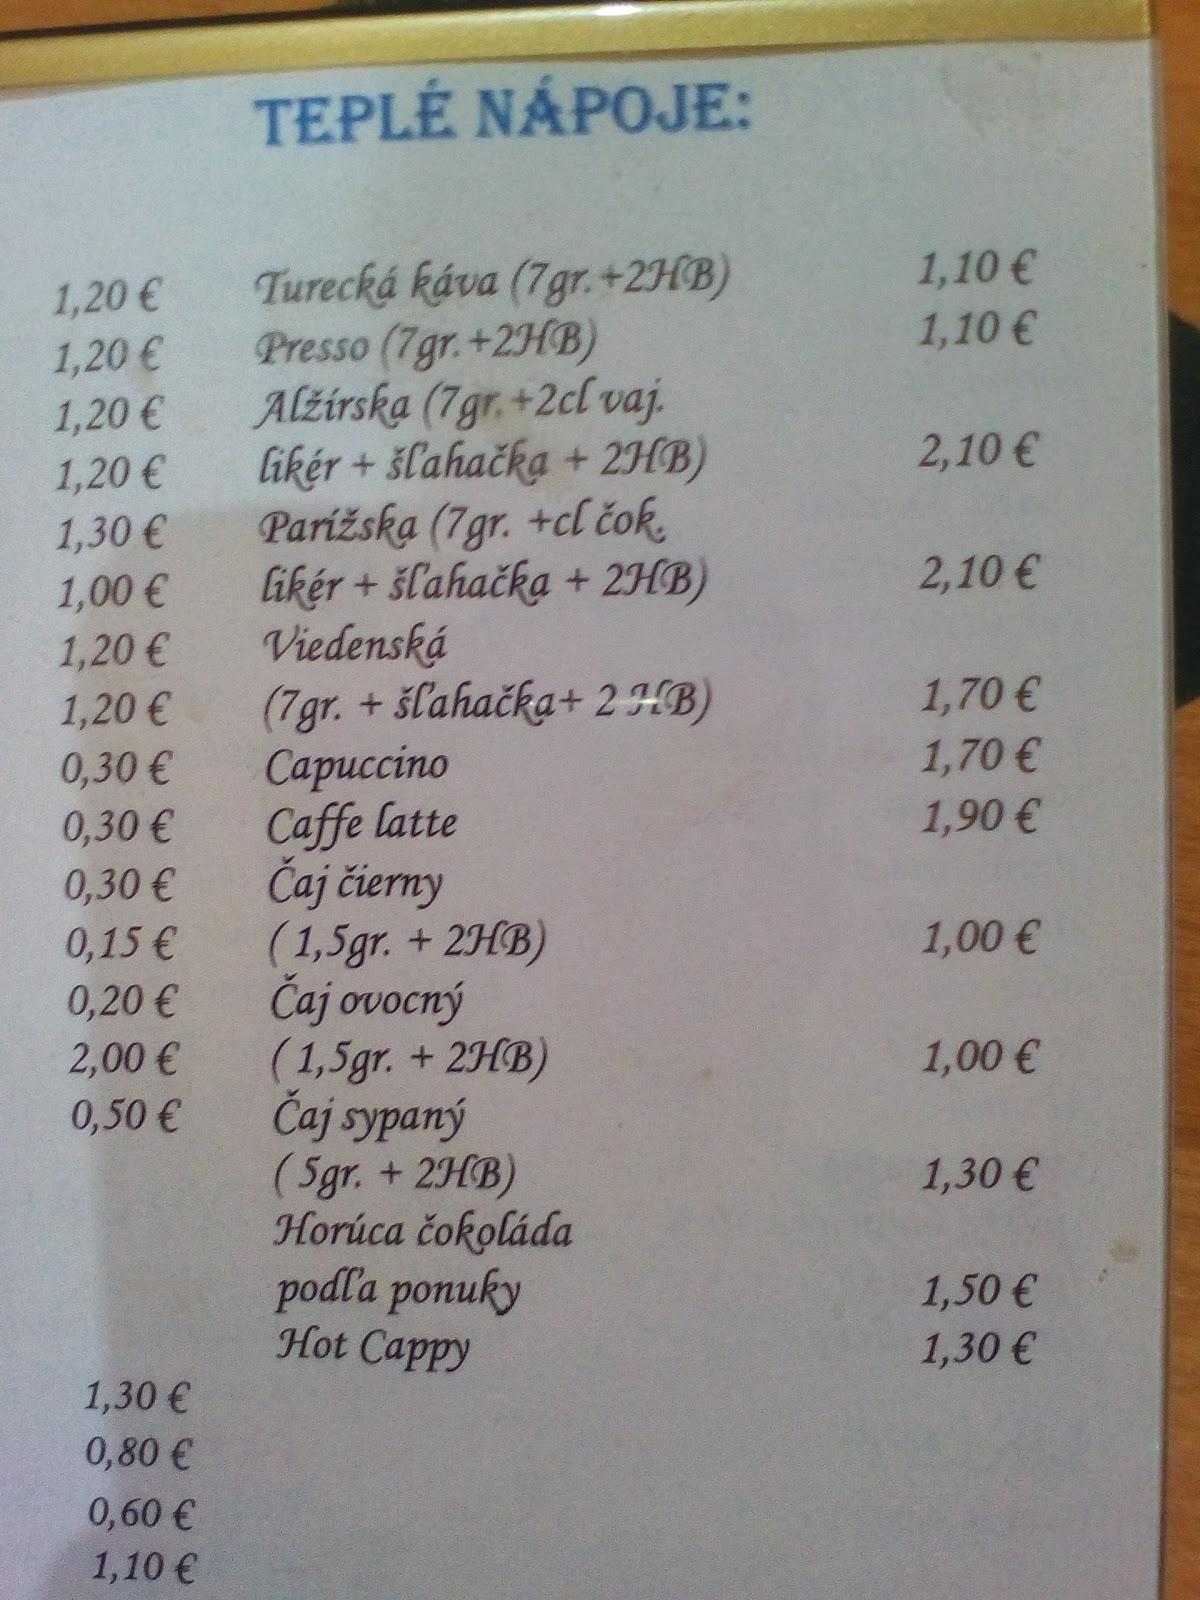 TEPLÉ NÁPOJE:
1,20 € Turecká káva (7gr.+2HB) 1,10 €
1,20 € Presso (7gr.+2HB) 1,10 €
1,20 € Alžírska (7gr.+2cl vaj.
1,20 € likér + šľahačka + 2HB) 2,10 €
1,30 € Parížska (7gr. +cl čok.
1,00 € likér + šľahačka + 2HB) 2,10 €
1,20 € Viedenská
1,20 € (7gr. + šľahačka+ 2 HB) 1,70 €
0,30 € Capuccino 1,70 €
0,30 € Caffe latte 1,90 €
0,30 € Čaj čierny
0,15 € ( 1,5gr. + 2HB) 1,00 €
0,20 € Čaj ovocný
2,00 € ( 1,5gr. + 2HB) 1,00 €
0,50 € Čaj sypaný
( 5gr. + 2HB) 1,30 €
Horúca čokoláda
podľa ponuky 1,50 €
Hot Cappy 1,30 €
1,30 €
0,80 €
0,60 €
1,10 €